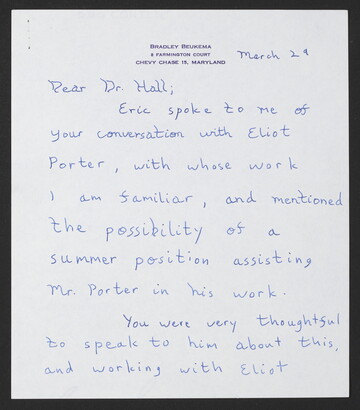 BRADLEY BEUKEMA
6 FARMINGTON COURT
CHEVY CHASE 15, MARYLAND
March 29
Dear Dr. Hall;
Eric spoke to me of
your conversation with Eliot
Porter, with whose work
I am familiar, and mentioned
the possibility of a
summer position assisting
Mr. Porter in his work.
You were very thoughtful
to speak to him about this,
and working with Eliot